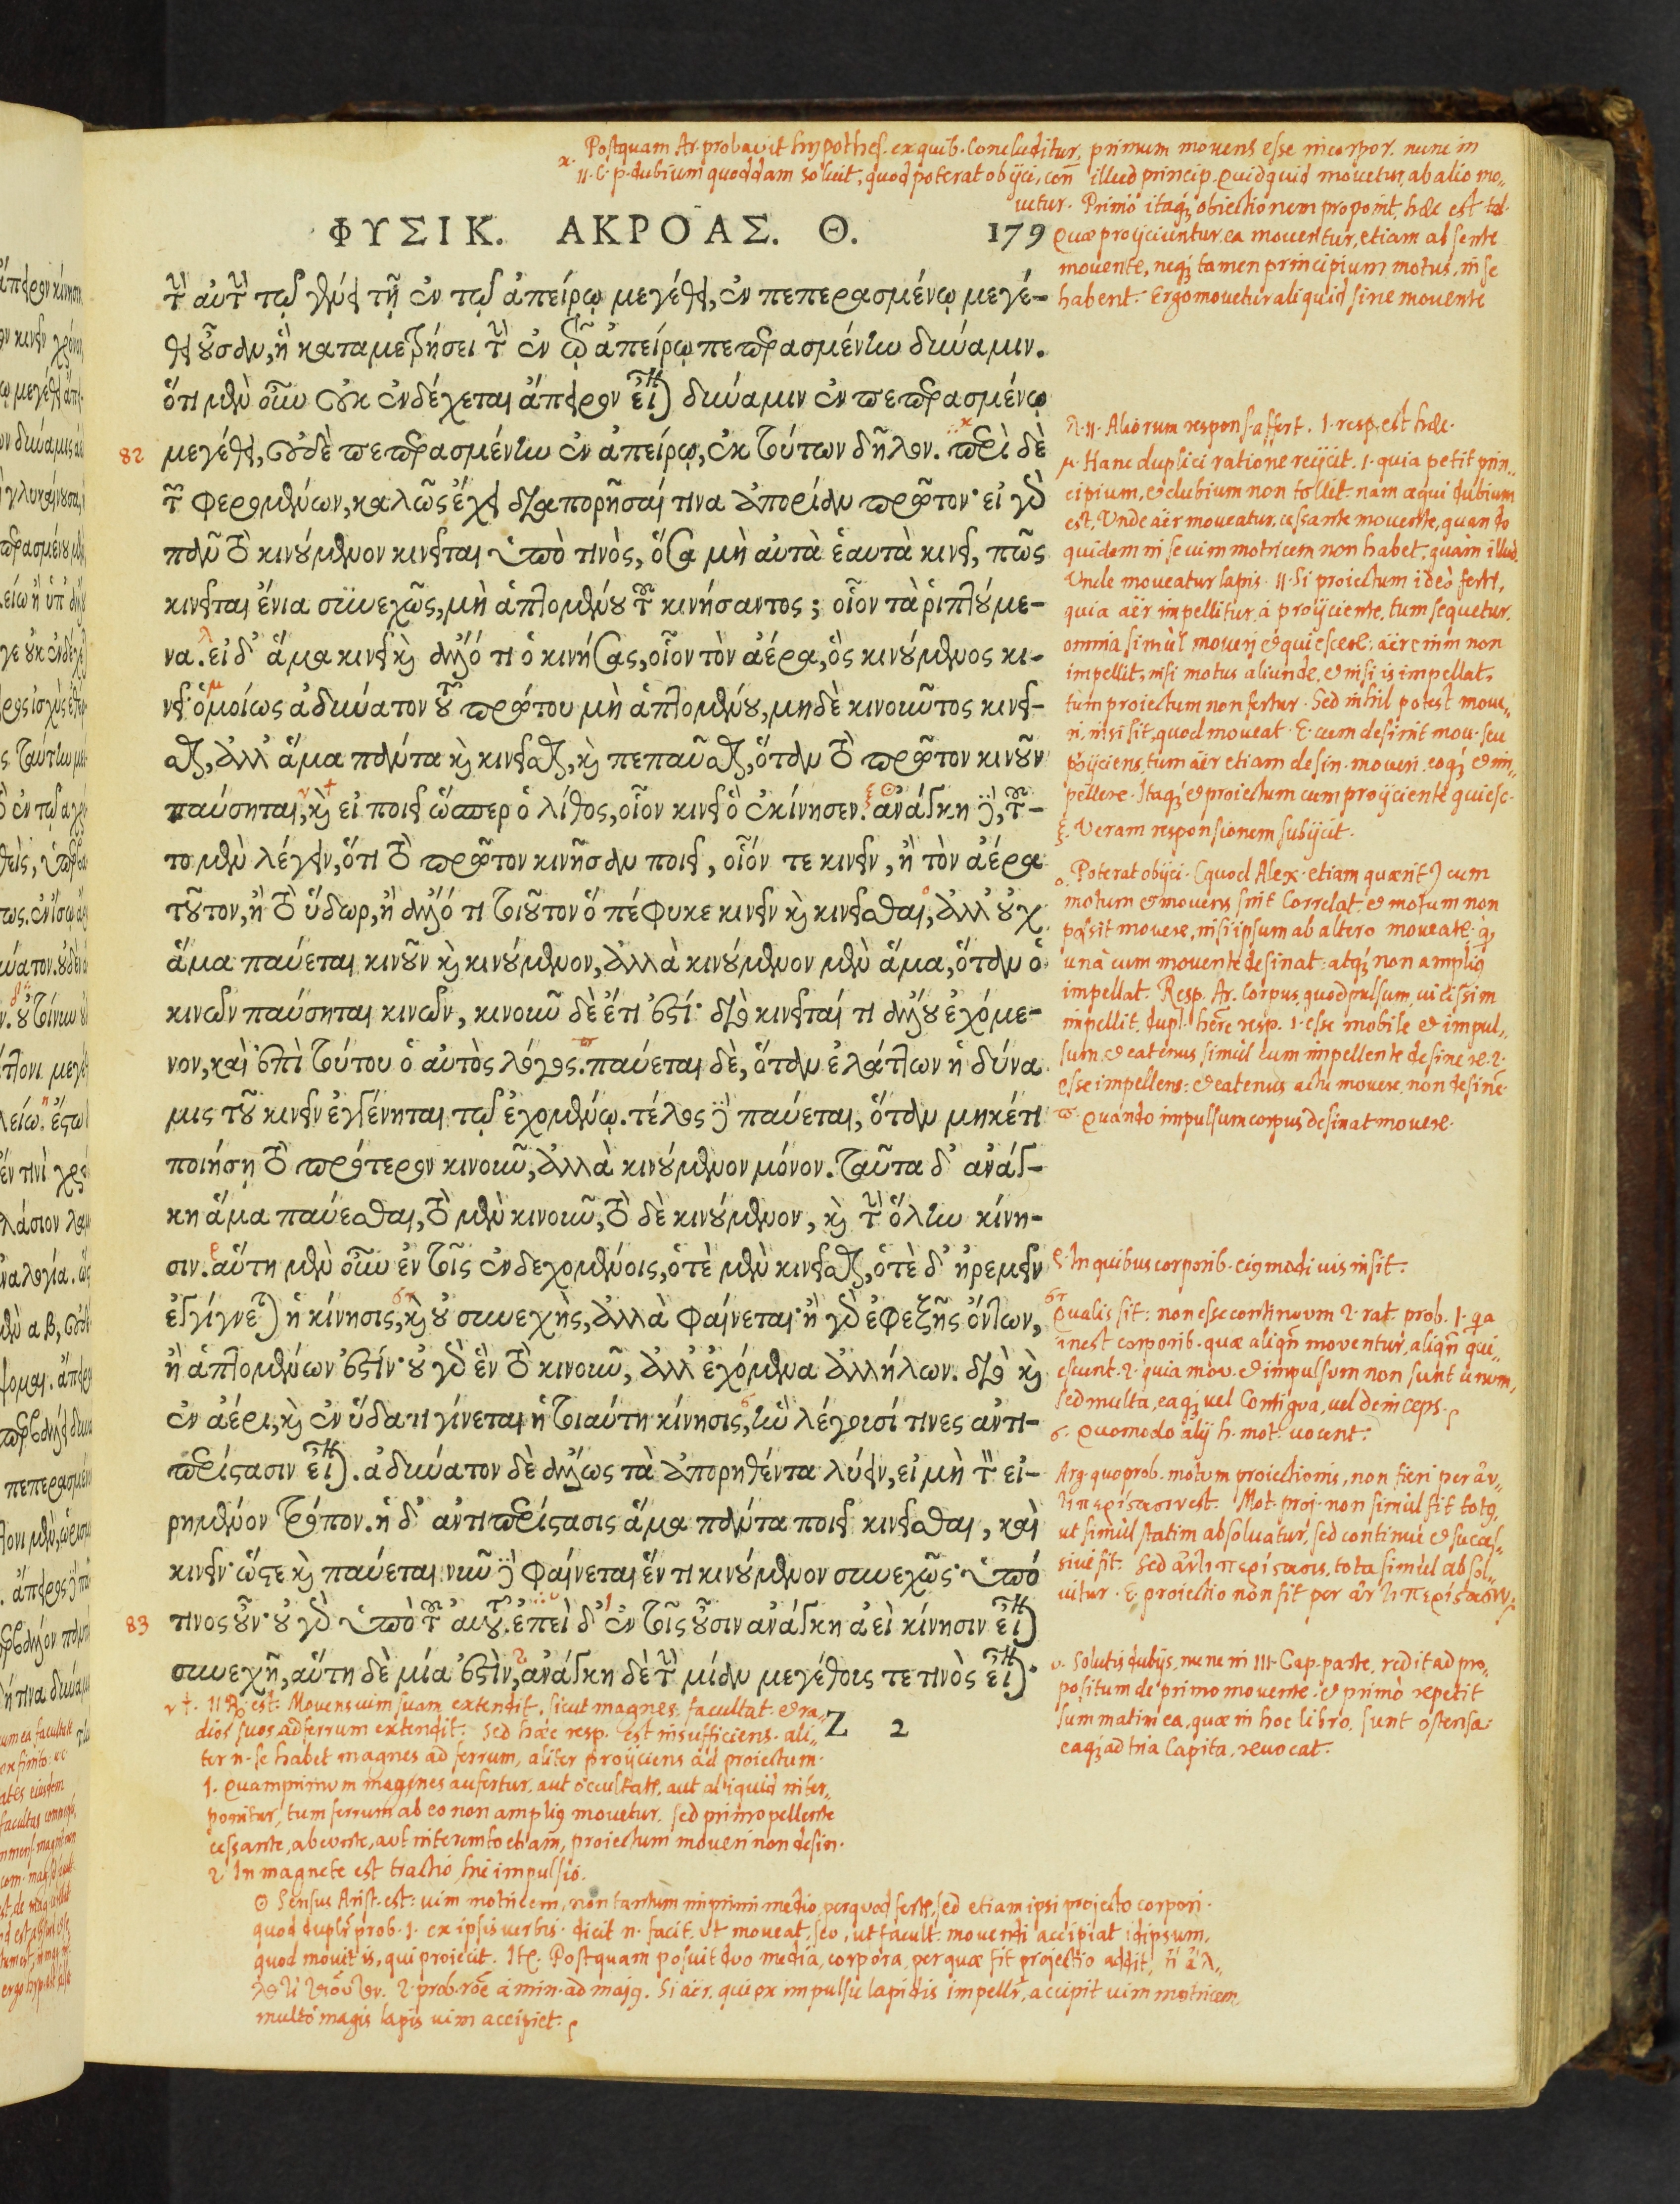 κ. Postquam Ar. probavit hypothes. ex quib. concluditur, primum movens esse incorpor. nunc in
II. C. p. dubium quoddam solvit, quod poterat obijci, con illud princip. Quidquid movetur, ab alio mo-
vetur. Primò itaq; obiectionem proponit, hæc est tal.
ΦΥΣΙΚ. ΑΚΡΟΑΣ. Θ. 179
τὴν αὐτὴν τῷ γένει τῇ ἐν τῷ ἀπείρῳ μεγέθει, ἐν πεπερασμένῳ μεγέ-
θει οὖσαν, ἢ καταμετρήσει τὴν ἐν τῷ ἀπείρῳ πεπερασμένην δύναμιν.
ὅτι μὲν οὖν οὐκ ἐνδέχεται ἄπειρον εἶναι δύναμιν ἐν πεπερασμένῳ
82 μεγέθει, οὐδὲ πεπερασμένην ἐν ἀπείρῳ, ἐκ τούτων δῆλον. περὶ δὲ
τῶν φερομένων, καλῶς ἔχει διαπορῆσαί τινα ἀπορίαν πρῶτον· εἰ γὰρ
πᾶν τὸ κινούμενον κινεῖται ὑπό τινὸς, ὅσα μὴ αὐτὰ ἑαυτὰ κινεῖ, πῶς
κινεῖται ἔνια συνεχῶς, μὴ ἁπτομένου τοῦ κινήσαντος; οἷον τὰ ῥιπτούμε-
να. εἰ δ' ἅμα κινεῖ καὶ ἄλλό τι ὁ κινήσας, οἷον τὸν ἀέρα, ὃς κινούμενος κι-
νεῖ· ὁμοίως ἀδύνατον τοῦ πρώτου μὴ ἁπτομένου, μηδὲ κινοῦντος κινεῖ-
σθαι, ἀλλ' ἅμα πάντα καὶ κινεῖσθαι, καὶ πεπαῦσθαι, ὅταν τὸ πρῶτον κινοῦν
παύσηται, καὶ εἰ ποιεῖ ὥσπερ ὁ λίθος, οἷον κινεῖ ὃ ἐκίνησεν. ἀνάγκη δὴ, τοῦ-
το μὲν λέγειν, ὅτι τὸ πρῶτον κινῆσαν ποιεῖ, οἷόν τε κινεῖν, ἢ τὸν ἀέρα
τοῦτον, ἢ τὸ ὕδωρ, ἢ ἄλλό τι τοιοῦτον ὃ πέφυκε κινεῖν καὶ κινεῖσθαι, ἀλλ' οὐχ
ἅμα παύεται κινοῦν καὶ κινούμενον, ἀλλὰ κινούμενον μὲν ἅμα, ὅταν ὁ
κινῶν παύσηται κινῶν, κινοῦν δὲ ἔτι ἐστί· διὸ κινεῖταί τι ἄλλου ἐχόμε-
νον, καὶ ἐπὶ τούτου ὁ αὐτὸς λόγος. παύεται δὲ, ὅταν ἐλάττων ἡ δύνα
μις τοῦ κινεῖν ἐγγένηται τῷ ἐχομένῳ. τέλος δὲ παύεται, ὅταν μηκέτι
ποιήσῃ τὸ πρότερον κινοῦν, ἀλλὰ κινούμενον μόνον. ταῦτα δ' ἀνάγ-
κη ἅμα παύεσθαι, τὸ μὲν κινοῦν, τὸ δὲ κινούμενον, καὶ τὴν ὅλην κίνη-
σιν. αὕτη μὲν οὖν ἐν τοῖς ἐνδεχομένοις, ὁτὲ μὲν κινεῖσθαι, ὁτὲ δ' ἠρεμεῖν
ἐγγίγνεται ἡ κίνησις, καὶ οὐ συνεχὴς, ἀλλὰ φαίνεται· ἢ γὰρ ἐφεξῆς ὄντων,
ἢ ἁπτομένων ἐστίν· οὐ γὰρ ἓν τὸ κινοῦν, ἀλλ' ἐχόμενα ἀλλήλων. διὸ καὶ
ἐν ἀέρι, καὶ ἐν ὕδατι γίνεται ἡ τοιαύτη κίνησις, ἣν λέγουσί τινες ἀντι-
περίστασιν εἶναι. ἀδύνατον δὲ ἄλλως τὰ ἀπορηθέντα λύειν, εἰ μὴ τὸν εἰ-
ρημένον τρόπον. ἡ δ' ἀντιπερίστασις ἅμα πάντα ποιεῖ κινεῖσθαι, καὶ
κινεῖν· ὥστε καὶ παύεται. νῦν δὲ φαίνεται ἕν τι κινούμενον συνεχῶς· ὑπό
83 τινος οὖν· οὐ γὰρ ὑπὸ τοῦ αὐτοῦ. ἐπεὶ δ' ἐν τοῖς οὖσιν ἀνάγκη ἀεὶ κίνησιν εἶναι
συνεχῆ, αὕτη δὲ μία ἐστὶν, ἀνάγκη δὲ τὴν μίαν μεγέθους τε τινὸς εἶναι·
Z 2
Quæ proijciuntur, ea moventur, etiam absente
movente, neq; tamen principium motus, in se
habent. Ergo movetur aliquid sine movente
λ. II. Aliorum respons. affert. I. resp. est hæc.
μ. Hanc duplici ratione reijcit. 1. quia petit prin-
cipium, et dubium non tollit. nam æqui dubium
est, Unde aër moveatur, cessante movente, quando
quidem in se vim motricem non habet, quàm illud.
Unde moveatur lapis. II. Si proiectum ideò fertr,
quia aër impellitur à proijciente, tum sequetur.
omnia simùl moveri et quiescere. aër enim non
impellit, nisi motus aliunde, et nisi is impellat,
tum proiectum non fertur. Sed nihil potest move-
ri, nisi sit, quod moveat. E. cum desinit mov. seu
proijciens, tum aër etiam desin. moveri, eoq; et im-
pellere. Itaq; et proiectum cum proijciente quiesc.
ξ. Veram responsionem subijcit.
ο. Poterat obijci. (quod Alex. etiam quærit) cum
motum et movens sint Correlat. et motum non
possit movere, nisi ipsum ab altero moveatr. q,
unà cum movente desinat: atq; non ampliq
impellat. Resp. Ar. Corpus, quod pulsum, vicissim
impellit, dupl. here resp. 1. esse mobile et impul-
sum. et eatenus, simùl cum impellente desinere. 2.
esse impellens: et eatenus actu movere, non desine.
π. Quando impulsum corpus desinat movere.
ρ. In quibus corporib. eiqmodi vis insit.
στ Qualis sit: non esse continuum 2. rat. prob. 1. qa
inest corporib. quæ aliqn moventur, aliqn qui-
escunt. 2. quia mov. et impulsum non sunt unum,
sed multa, eaq; vel Contigua, vel deinceps.
σ. Quomodo alij h. mot. vocent.
Arg. quo prob. motum proiectionis, non fieri per ἀν-
τιπερίστασιν est. Mot. proj. non simùl fit totq,
ut simùl statim absolvatur, sed continuè et succes-
sivè fit. Sed ἀντιπερίστασις, tota simùl absol-
vitur. E. proiectio non fit per ἀντιπερίστασιν.
υ. Solutis dubijs, nunc in III. Cap. parte, redit ad pro-
positum de primo movente. et primò repetit
summatim ea, quæ in hoc libro, sunt ostensa.
eaq; ad tria Capita, revocat.
ν †. II R. est: Movens vim suam extendit, sicut magnes facultat. et ra-
dios suos ad ferrum extendit. Sed hæc resp. est insufficiens. ali-
ter n. se habet magnes ad ferrum, aliter proijciens ad proiectum.
1. Quamprimum magnes aufertur, aut occultatr, aut aliquid inter-
ponitur, tum ferrum ab eo non ampliq movetur. sed primo pellente
cessante, abeunte, aut interempto etiam, proiectum moveri non desin.
2 In magnete est tractio hic impulsio.
⊙ Sensus Arist. est: vim motricem, non tantùm imprimi medio, per quod fertr, sed etiam ipsi projecto corpori.
quod duplr prob. 1. ex ipsis verbis. dicit n. facit. ut moveat, seu, ut facult. movendi accipiat idipsum,
quod movit is, qui proiecit. Ite. Postquam posuit duo media, corpora, per quæ fit projectio addit, ἤ ἄλ-
λο τι τοιοῦτον. 2. prob. rõe à min. ad majq. Si aër, qui ex impulsu lapidis impellr, accipit vim motricem,
multò magis lapis vim accipiet.